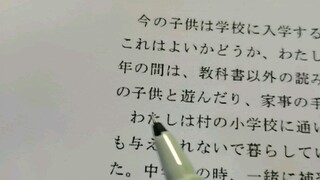 今の子供は学校に入学する
これはよいかどうか、わたし
年の間は、教科書以外の読み
の子供と遊んだり、家事の手
わたしは村の小学校に通い
も与えられないで暮らしてい
た。中学の時、一緒に補